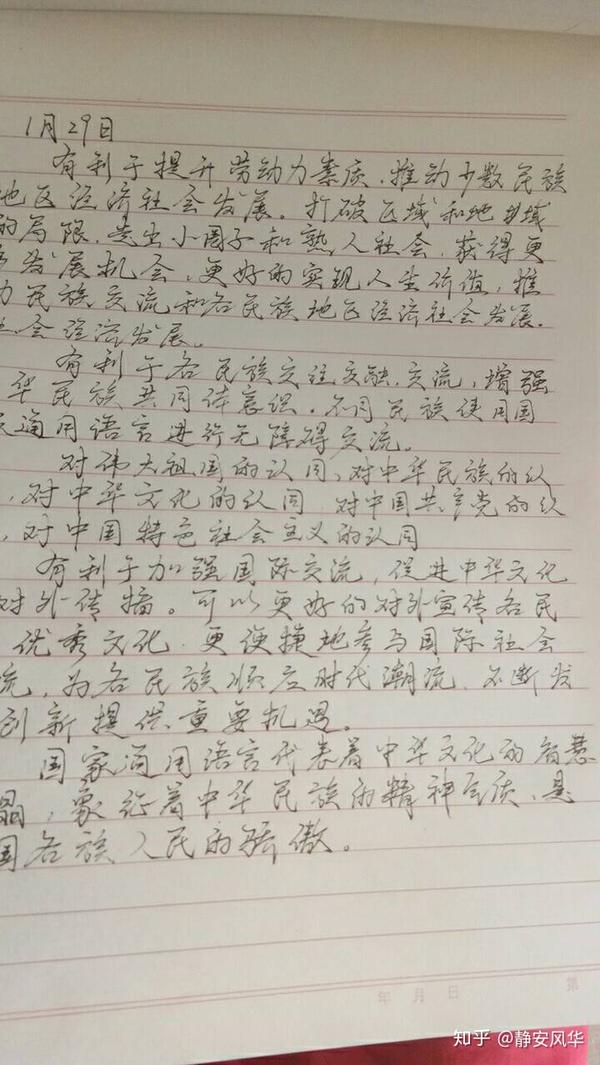 1月29日
有利于提升劳动力素质，推动少数民族
地区经济社会发展。打破区域和地域
的局限，走出小圈子和熟人社会，获得更
发展机会，更好的实现人生价值，推
民族交流和各民族地区经济社会发展。
社会经济发展。
有利于各民族交往交融，交流，增强
华民族共同体意识。不同民族使用国
通用语言进行无障碍交流。
对伟大祖国的认同、对中华民族的认
，对中华文化的认同 对中国共产党的认
，对中国特色社会主义的认同
有利于加强国际交流，促进中华文化
对外传播。可以更好的对外宣传各民
优秀文化 更便捷地参与国际社会
流，为各民族顺应时代潮流、不断发
创新提供重要机遇。
国家通用语言代表着中华文化的智慧
晶，象征着中华民族的精神气质、是
国各族人民的骄傲。
年 月 日 第
知乎 @静安风华